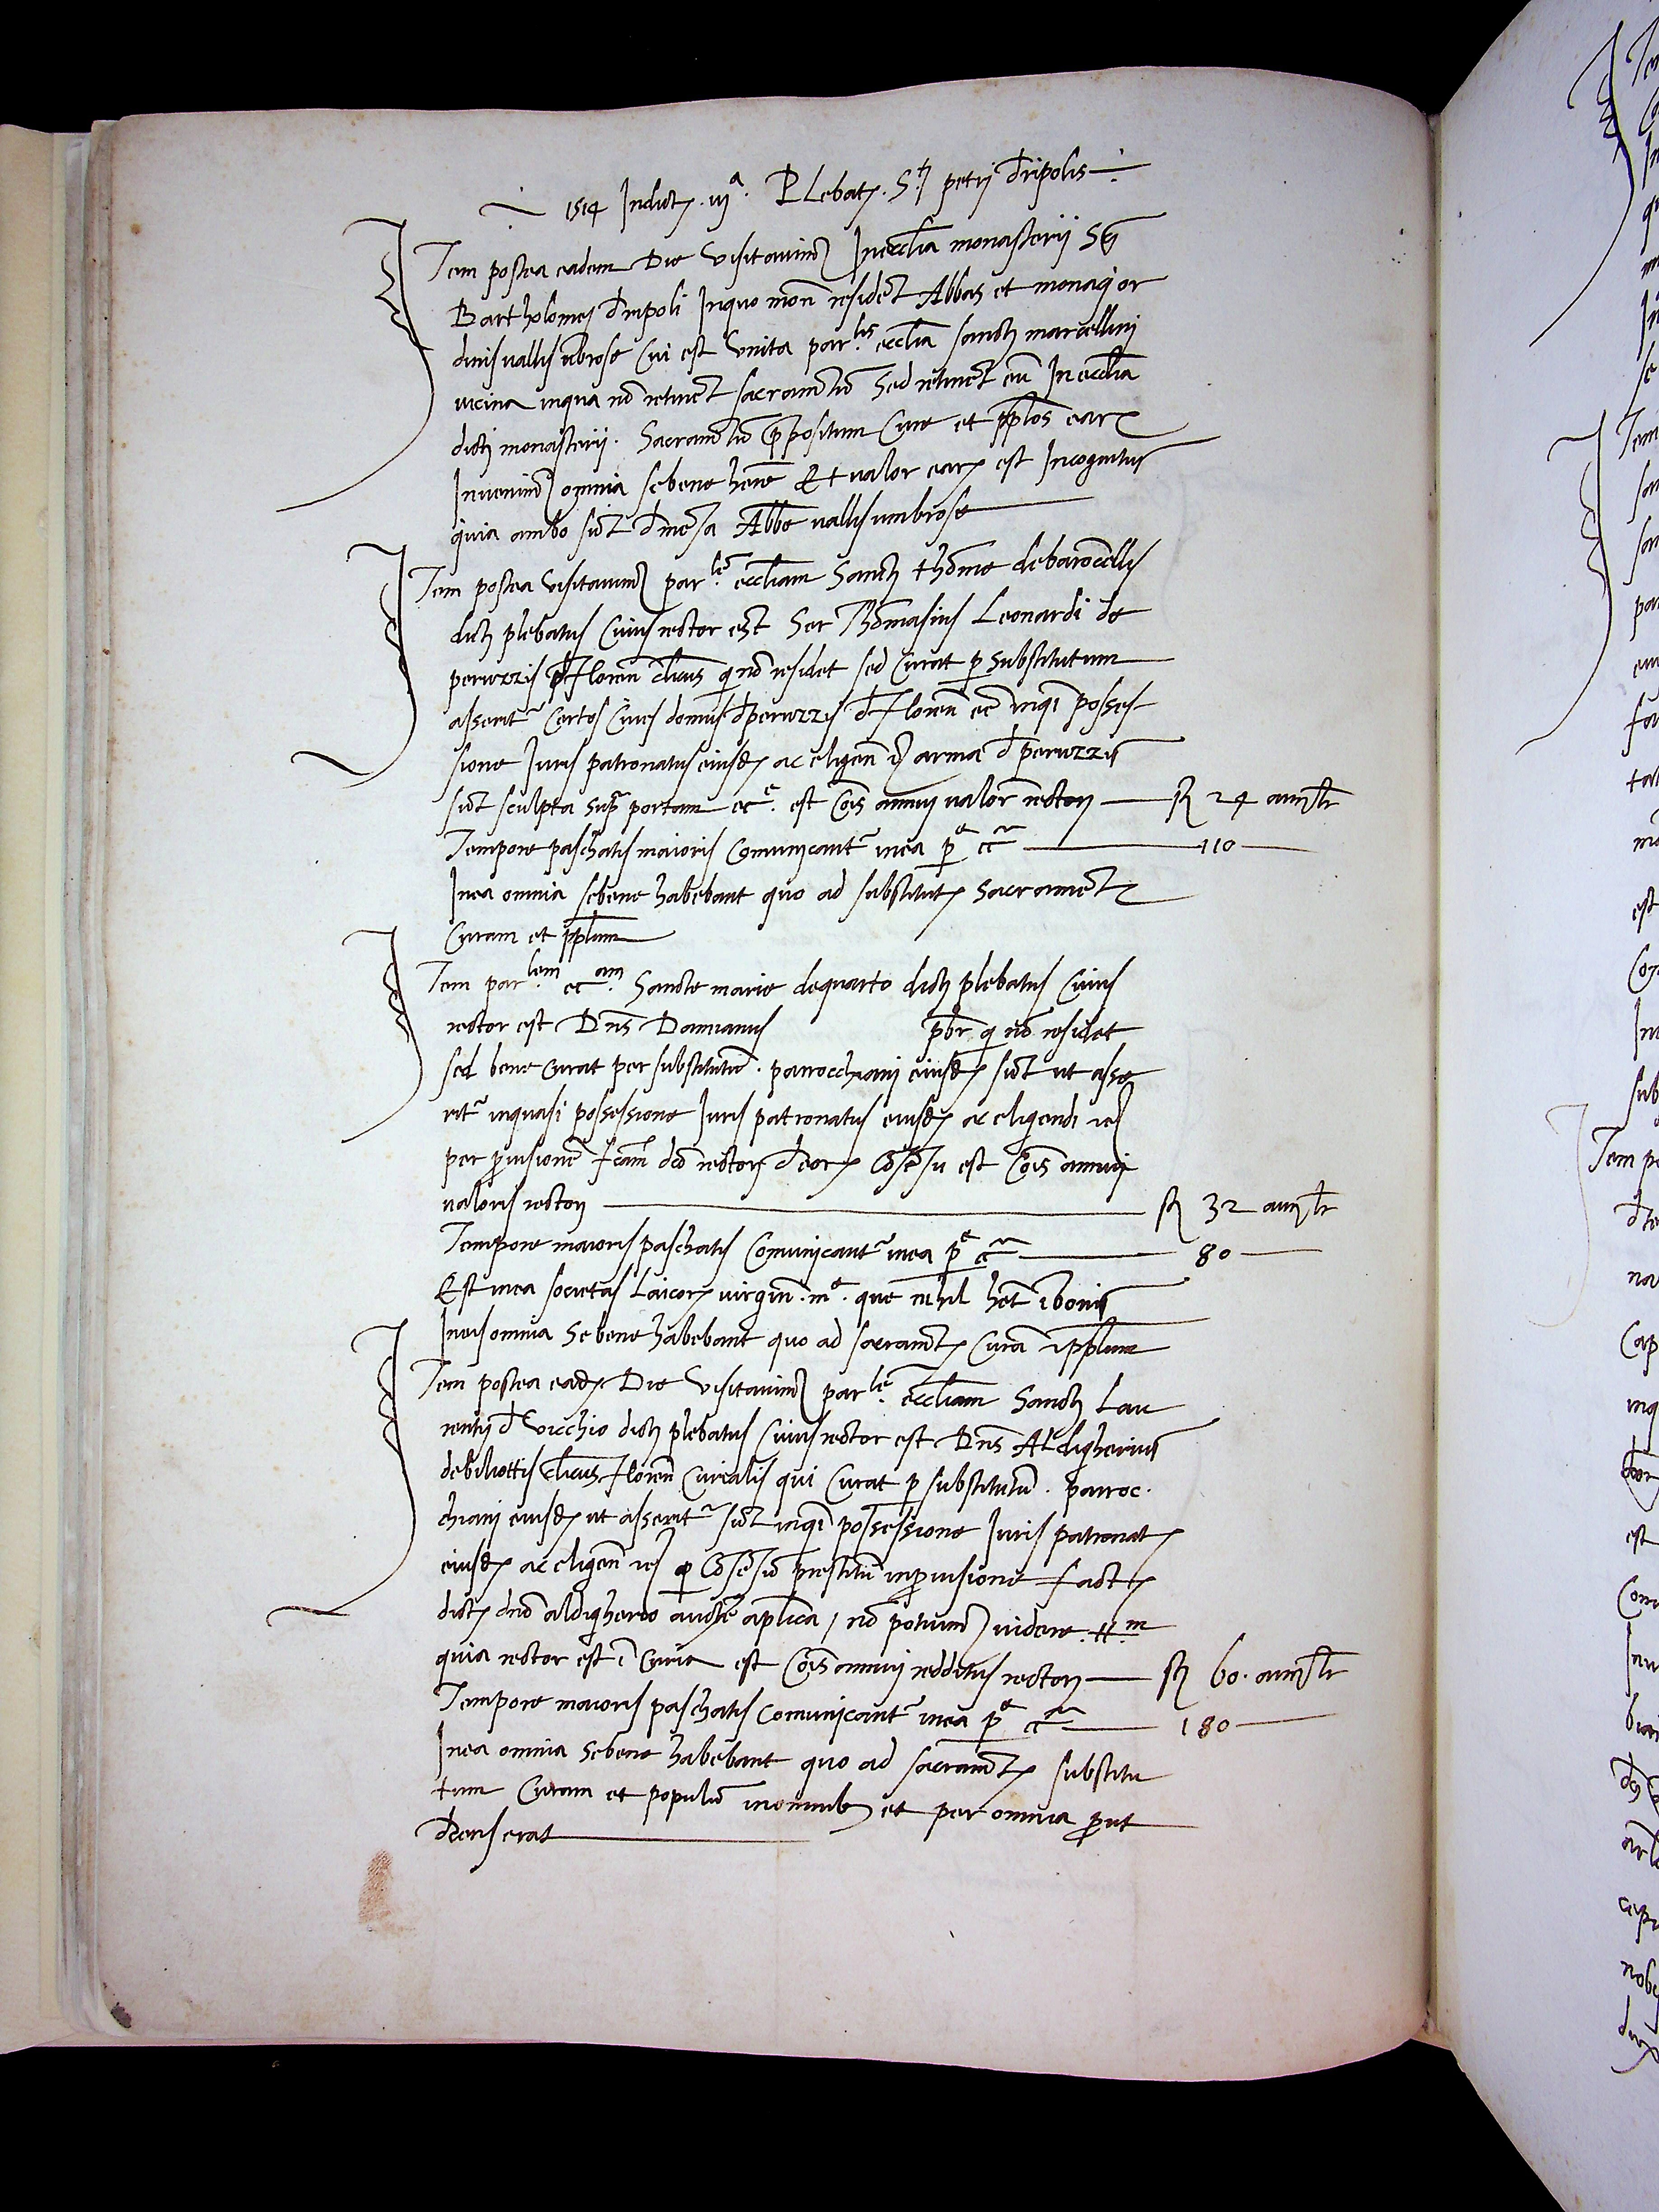 1514 Indict. iijª. PLebatꝫ. Stj petrj đripolis
Item postea eadem Die visitauimꝰ Inecclīa monasterij Stj
Bartholomej đripoli Inquo moñ residēt Abbas et monacj or
dinisvallisūbrose Cui est Vnita par.lis ecclīa sanctj marcellinj
vicina inqua nō retinēt sacramētū Sed retinēt eū In ecclīa
dictj monasterij. Sacramētū ꝓpositum Cure et ppłos earꝫ
Inuenimꝰ omnia sebene hēre Et valor earꝫ est Incognitus
quia ambo sūt đmēsa Abbē vallisumbrose
Item postea visitauimꝰ par.lē eccliam Sanctj thōme debaroncellis
dictj plebatus Cuius rector est Ser Thōmasius Leonardi de
peruzzis đ Floreñ clīcus q nō residet sed Curat ꝑ substitutum
asserit᷑ Certos Ciues domus đperuzzis đ Floreñ eē inqī posses-
sione Iuris patronatus eiusđꝫ ac eligeñ ꝫ arma đ peruzzis
sūt sculpta supꝛ portam ecē. est Cōis annuj valor᷑ rectorj — fl 24 aurj lr
Tempore paschatis maioris Comunicant᷑ inea ꝑe cc — 110
Inea omnia sebene habebant quo ad substitutꝫ Sacramētꝫ
Curam et ppłum
Item par.lem ec.am Sancte marie dequarto dictj plebatus Cuius
rector est Dn̄s Damianus pb̄r q nō residet
sed bene Curat per substitutū. parrocchianj eiusđꝫ sūt ut asse
rit᷑ inquasi possessione Iuris patronatus eiusđꝫ ac eligendi
per ꝓuisionē fcām dcō rectorj đeorꝫ Cōsēsu est Cōis annuj
valoris rectorj — fl 32 aurj lr
Tempore maioris paschatis Comunicant᷑ inea ꝑe cc — 80
Est inea societas Laicorꝫ virgiñ. me. que nihil hēt ī bonis
Ineis omnia Sebene habebant quo ad sacramētꝫ Curā ꝫ ppłum
Item postea eadꝫ Die visitauimꝰ par.lē eccliam Sanctj Lau
rentij đ Vicchio dictj plebatus Cuius rector est Dn̄s Aldigherius
debiliottis clīcus Floreñ Curialis qui Curat ꝑ substitutū. parroc-
chianj eiusđꝫ ut asserit᷑ sūt inqī possessione Iuris patronatꝫ
eiusđꝫ ac eligeñ ꝑ Cōsēsū prestitū inꝓuisione factꝫ
dictꝫ dn̄o aldigherio auctē aplīca / nō potuimꝰ videre tt.m
quia rector est ī Curia est Cōis annuj redditus rectorj — fl 60. aurj lr
Tempore maioris paschatis Comunicant᷑ inea ꝑe cc — 180
Inea omnia Sebene habebant quo ad sacramētꝫ substitu
tum Curam et populū inomnibꝫ et per omnia ꝓut
decens erat